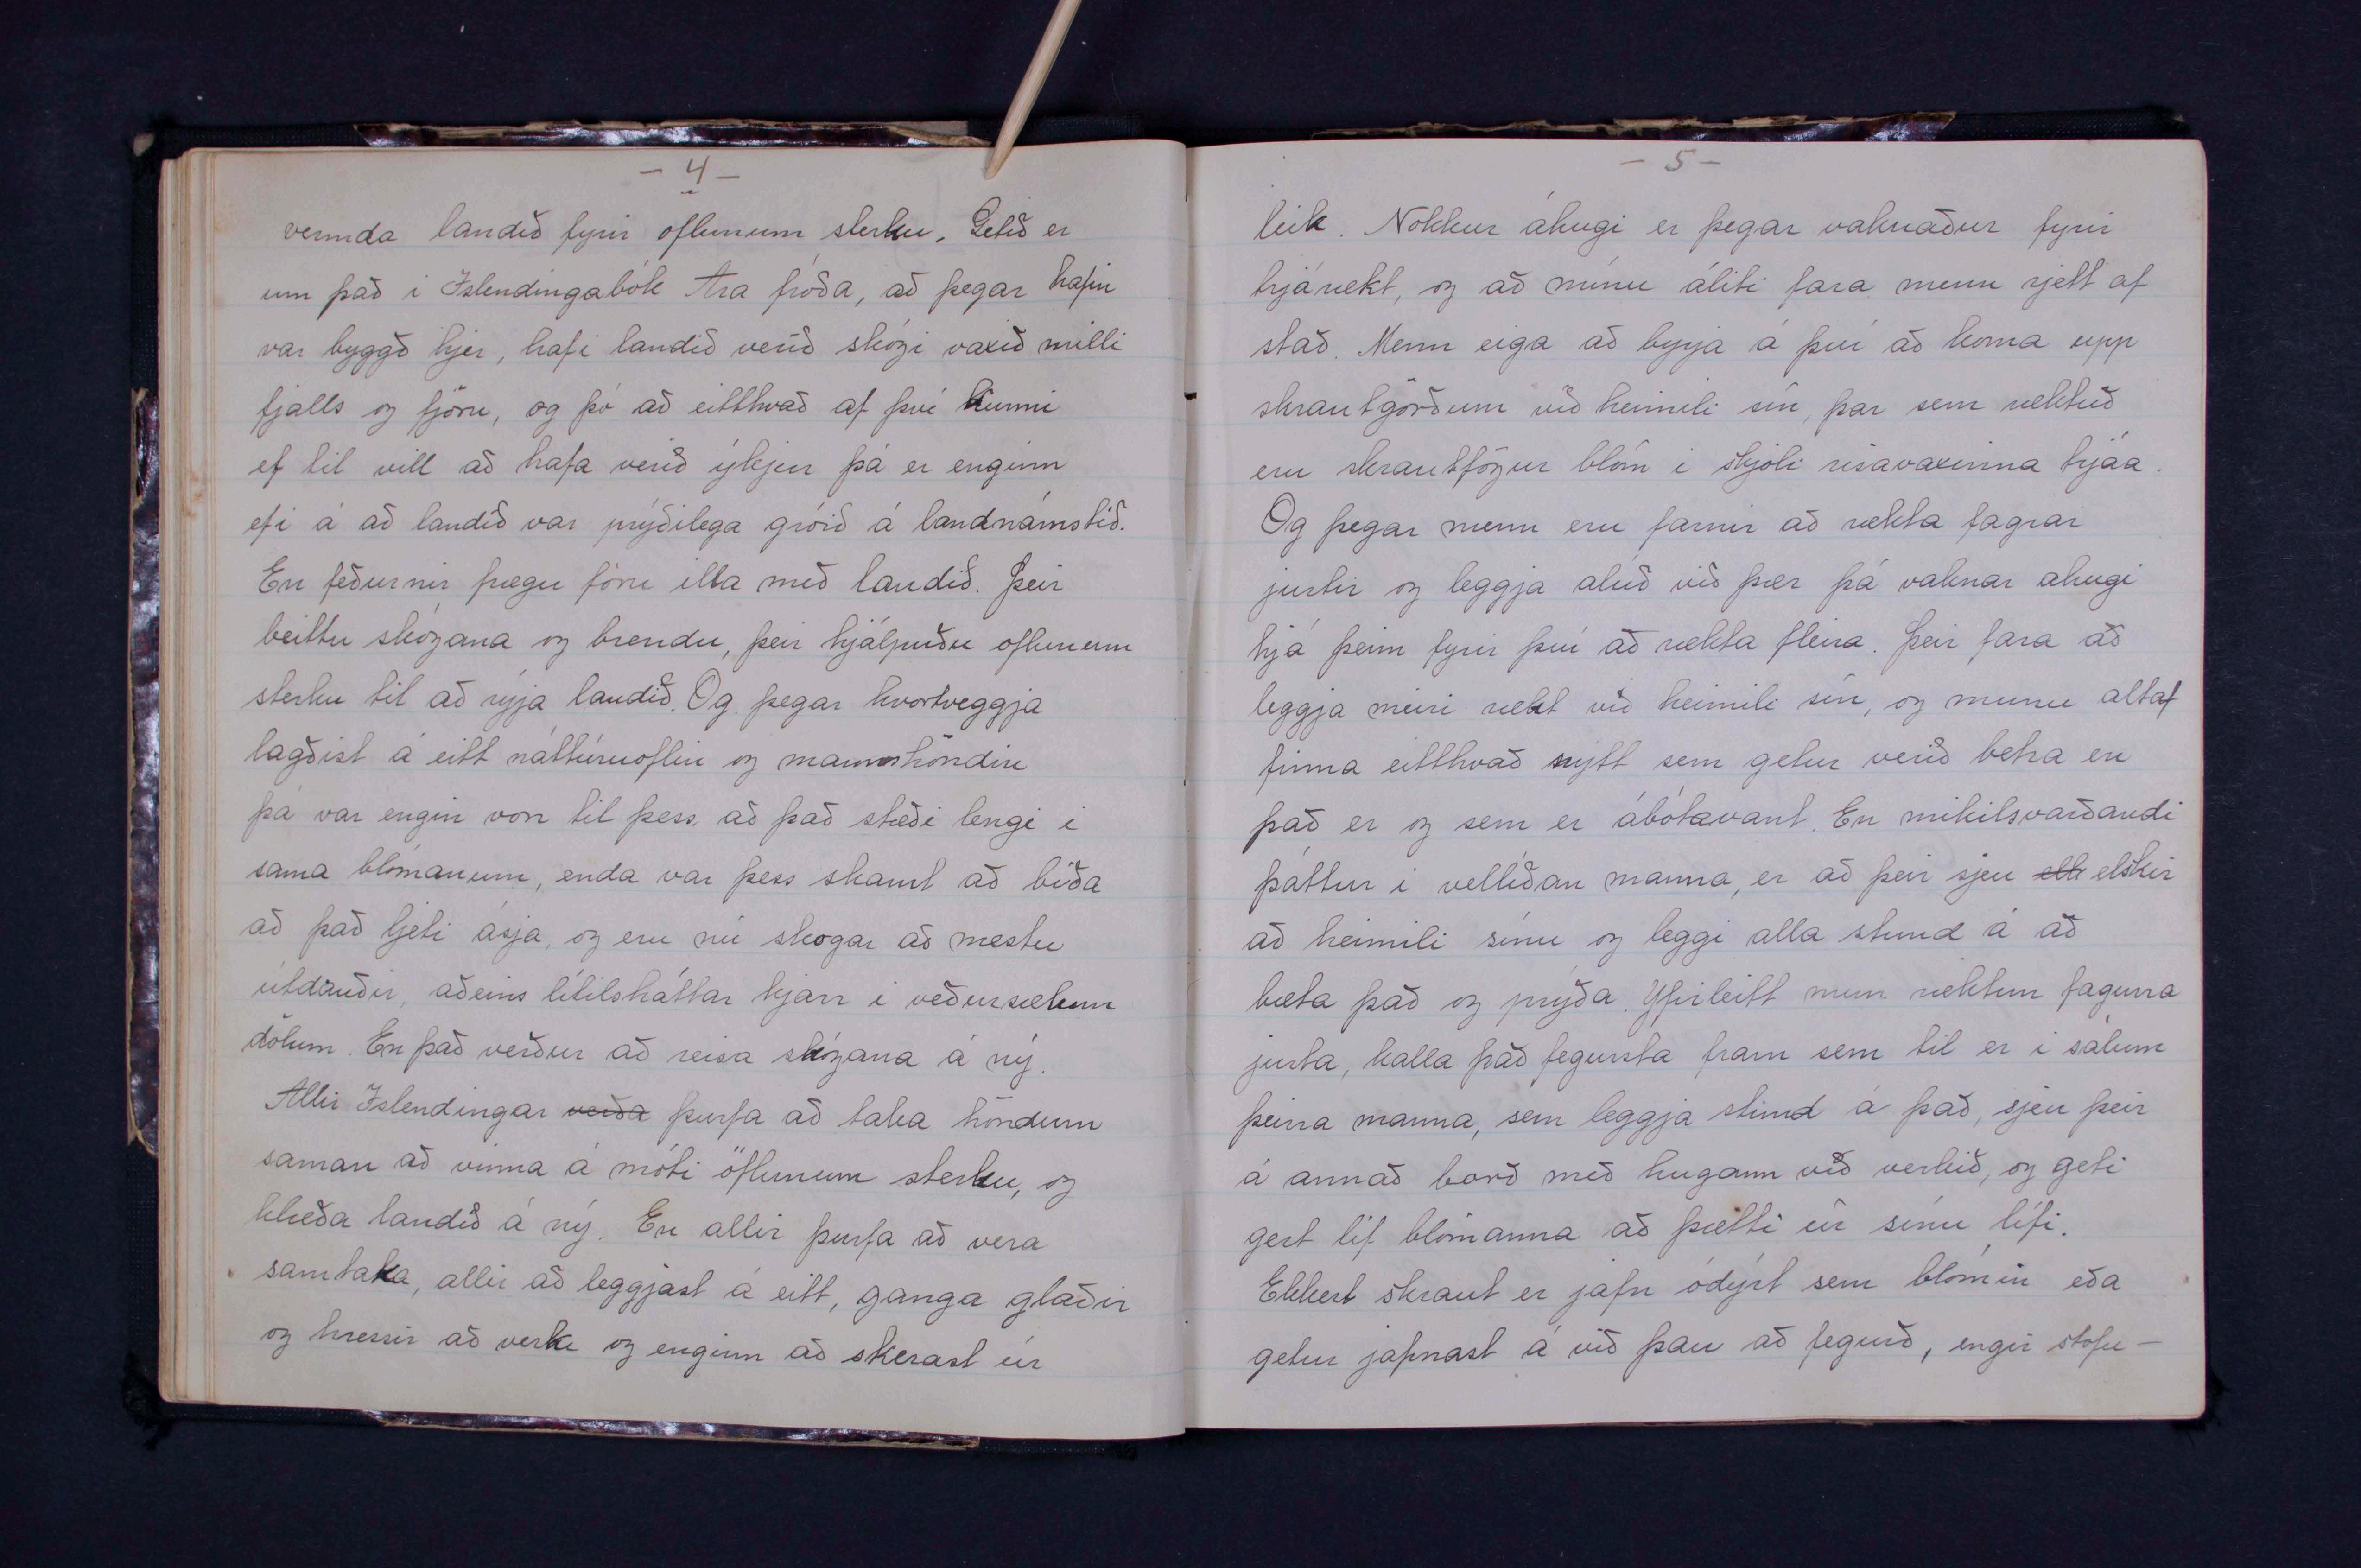 - 4 -
vernda landið fyrir öflunum sterku. Getið er
um það i Islendingabók Ara fróða, að þegar hafin
var byggð hjer, hafi landið verið skógi vaxið milli
fjalls og fjöru, og þó að eitthvað af því kunni
ef til vill að hafa verið ýkjur þá er enginn
efi á að landið var prýðilega gróið á landnámstíð.
En feðurnir frægu fóru illa með landið. Þeir
beittu skógana og brendu, þeir hjálpuðu öflunum
sterku til að rýja landið. Og þegar hvortveggja
lagðist á eitt náttúruöflin og mannshöndin
þá var engin von til þess að það stæði lengi i
sama blómanum, enda var þess skamt að bíða
að það ljeti ásja, og eru nú skógar að mestu
útdauðir, aðeins lítilsháttar kjarr i veðursælum
dölum. En það verður að reisa skógana á ný.
Allir Islendingar verða þurfa að taka höndum
saman að vinna á móti öflunum sterku, og
klæða landið á ný. En allir þurfa að vera
samtaka, allir að leggjast á eitt, ganga glaðir
og hressir að verki og enginn að skerast úr
- 5 -
leik. Nokkur áhugi er þegar vaknaður fyrir
trjárækt, og að mínu áliti fara menn rjett af
stað. Menn eiga að byrja á því að koma upp
skrautgörðum við heimili sín, þar sem ræktuð
eru skrautfögur blóm i skjóli risavaxinna trjáa.
Og þegar menn eru farnir að rækta fagrar
jurtir og leggja alúð við þær þá vaknar áhugi
hjá þeim fyrir því að rækta fleira. Þeir fara að
leggja meiri rækt við heimili sín, og munu altaf
finna eitthvað nýtt sem getur verið betra en
það er og sem er ábótavant. En mikilsvarðandi
þáttur i vellíðan manna, er að þeir sjeu elk elskir
að heimili sínu og leggi alla stund á að
bæta það og prýða. Yfirleitt mun ræktun fagurra
jurta, kalla það fegursta fram sem til er i sálum
þeirra manna, sem leggja stund á það, sjeu þeir
á annað borð með hugann við verkið, og geti
gert líf blómanna að þætti úr sínu lífi.
Ekkert skraut er jafn ódýrt sem blómin eða
getur jafnast á við þau að fegurð, engir stofu-